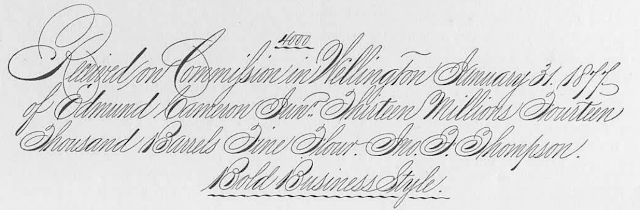 4000
Received on Commission in Wellington January 31, 1877
of Edmund Cameron Junr. Thirteen Millions Fourteen
Thousand Barrels Fine Flour. Jno. F. Thompson.
Bold Business Style.